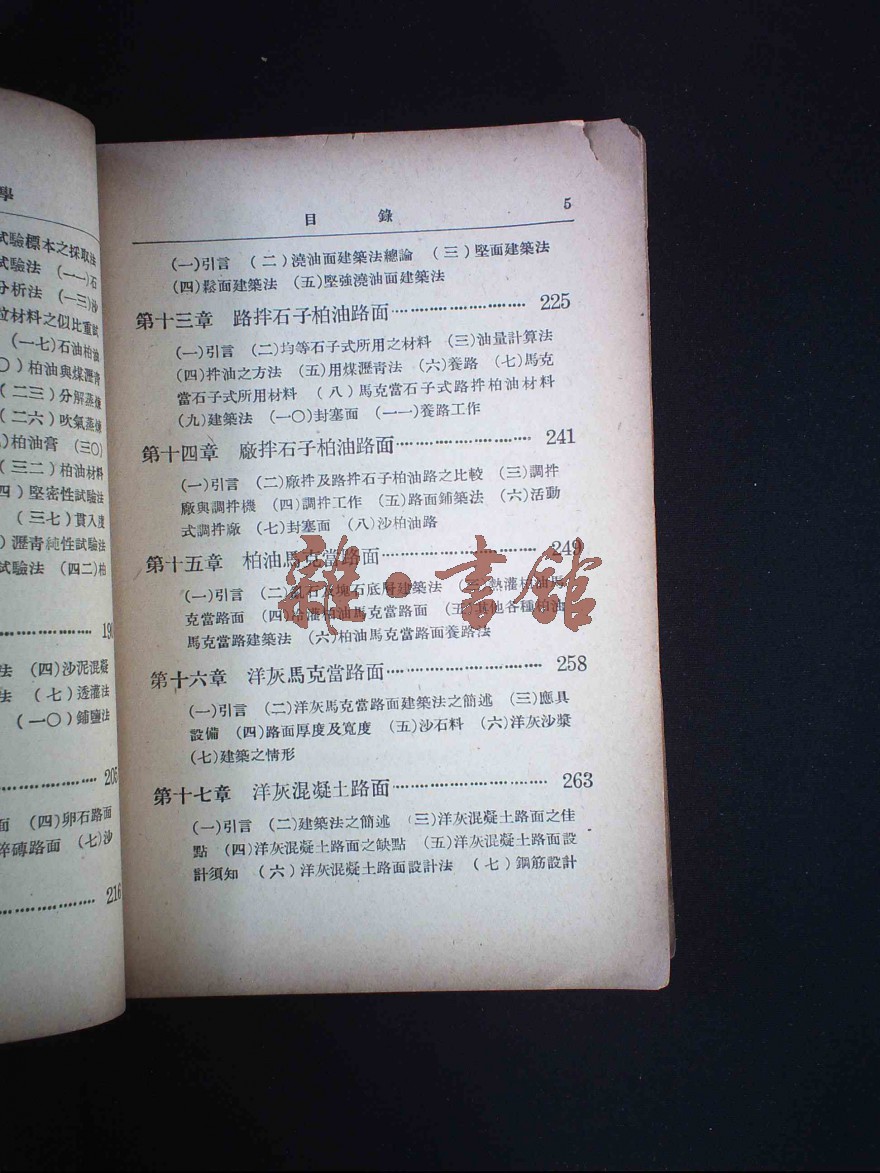 學
試驗標本之採取法
試驗法 (一一)石
分析法 (一三)沙
粒材料之似比重試
(一七)石油柏油
〇)柏油與煤瀝青
(二三)分解蒸煉
(二六)吹氣蒸煉
)柏油膏 (三〇)
(三二)柏油材料
四)堅密性試驗法
(三七)貫入度
)瀝青純性試驗法
試驗法 (四二)柏
190
法 (四)沙泥混凝
法 (七)透灌法
(一〇)鋪鹽法
205
面 (四)卵石路面
碎磚路面 (七)沙
216
目 錄 5
(一)引言 (二)澆油面建築法總論 (三)堅面建築法
(四)鬆面建築法 (五)堅強澆油面建築法
第十三章 路拌石子柏油路面 225
(一)引言 (二)均等石子式所用之材料 (三)油量計算法
(四)拌油之方法 (五)用煤瀝青法 (六)養路 (七)馬克
當石子式所用材料 (八)馬克當石子式路拌柏油材料
(九)建築法 (一〇)封塞面 (一一)養路工作
第十四章 廠拌石子柏油路面 241
(一)引言 (二)廠拌及路拌石子柏油路之比較 (三)調拌
廠與調拌機 (四)調拌工作 (五)路面鋪築法 (六)活動
式調拌廠 (七)封塞面 (八)沙柏油路
第十五章 柏油馬克當路面 249
(一)引言 (二)亂石及塊石底脚建築法 (三)熱灌柏油馬
克當路面 (四)冷灌柏油馬克當路面 (五)其他各種柏油
馬克當路建築法 (六)柏油馬克當路面養路法
龍·書館
第十六章 洋灰馬克當路面 258
(一)引言 (二)洋灰馬克當路面建築法之簡述 (三)應具
設備 (四)路面厚度及寬度 (五)沙石料 (六)洋灰沙漿
(七)建築之情形
第十七章 洋灰混凝土路面 263
(一)引言 (二)建築法之簡述 (三)洋灰混凝土路面之佳
點 (四)洋灰混凝土路面之缺點 (五)洋灰混凝土路面設
計須知 (六)洋灰混凝土路面設計法 (七)鋼筋設計